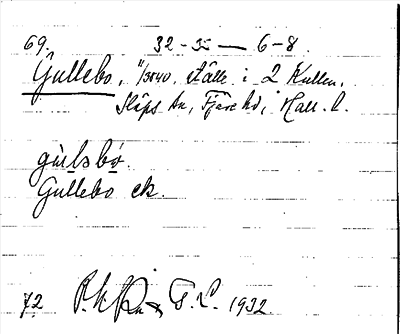 69. 32-35 — 6-8.
Gullebo, 11/3840. ställe i 2 Kullen,
Släps sn, Fjäre hd, Hall. l.
gu̇lsbo.
Gullebo ek.
72 G. L. 1932